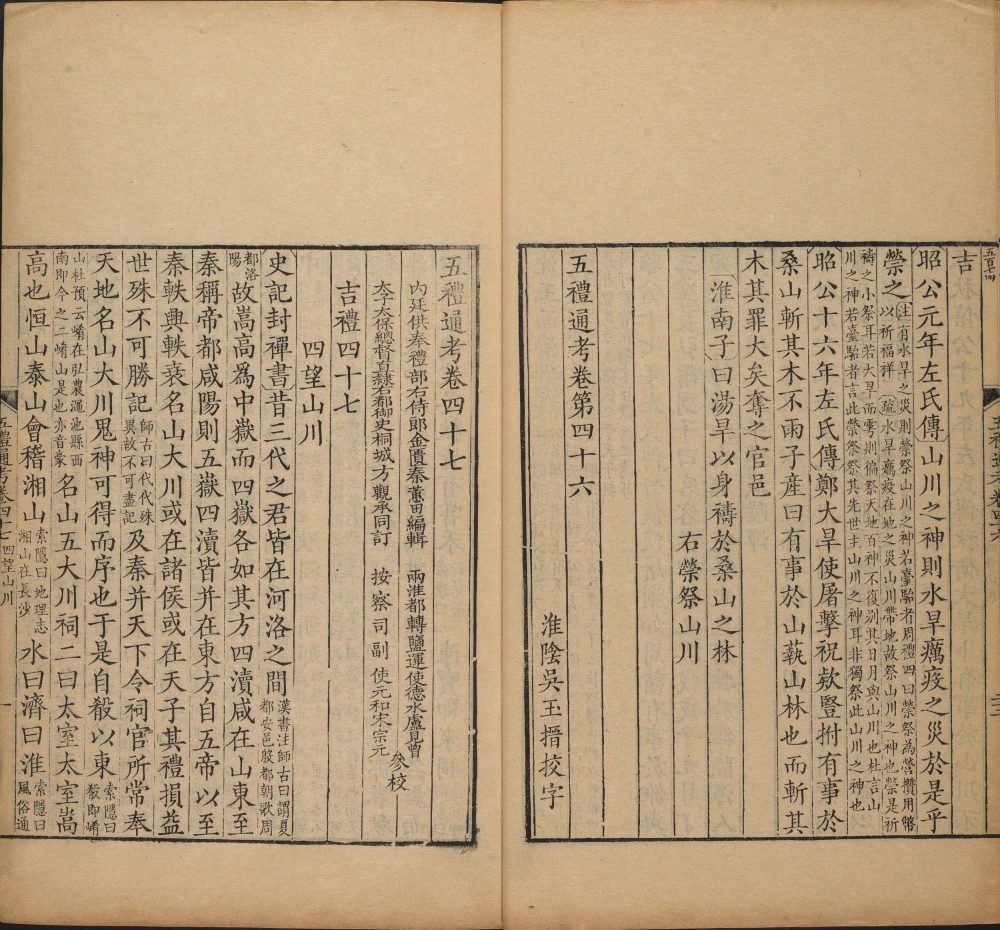 昭公元年左氏傳山川之神則水旱癘疫之災於是乎
禜之注有水旱之災則禜祭山川之神若臺駘者周禮四曰禜祭為營攢用幣
以祈福祥疏水旱癘疫在地之災山川帶地故祭山川之神也禜是祈
禱之小祭耳若大旱而雩則徧祭天地百神不復别其日月與山川也杜言山
川之神若臺駘者言此禜祭祭其先世主山川之神耳非獨祭此山川之神也
昭公十六年左氏傳鄭大旱使屠擊祝款豎柎有事於
桑山斬其木不雨子産曰有事於山蓺山林也而斬其
木其罪大矣奪之官邑
淮南子曰湯旱以身禱於桑山之林
右禜祭山川
五禮通考卷第四十六
淮陰吳玉搢挍字
五禮通考卷四十七
内廷供奉禮部右侍郎金匱秦蕙田編輯
太子太保總督直隷右都御史桐城方觀承同訂
兩淮都轉鹽運使德水盧見曾
按察司副使元和宋宗元
參校
吉禮四十七
四望山川
史記封禪書昔三代之君皆在河洛之間漢書注師古曰謂夏
都安邑殷都朝歌周
都洛
陽故嵩高為中嶽而四嶽各如其方四瀆咸在山東至
秦稱帝都咸陽則五嶽四瀆皆并在東方自五帝以至
秦軼興軼衰名山大川或在諸侯或在天子其禮損益
世殊不可勝記師古曰代代殊
異故不可盡記及秦并天下令祠官所常奉
天地名山大川鬼神可得而序也于是自殽以東索隱曰
殽即崤
山杜預云崤在弘農澠池縣西
南即今之二崤山是也亦音豪名山五大川祠二曰太室太室嵩
高也恒山泰山會稽湘山索隱曰地理志
湘山在長沙水曰濟曰淮索隱曰
風俗通
五禮通考卷四十七四望山川
一